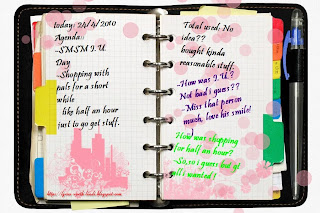 today: 24/4/2010
Agenda:
~SMSM I.U.
Day
~Shopping with
pals for a short
while
like half an hour
just to go get stuff.
Total used: No
idea??
bought kinda
reasonable stuff.
~How was I.U.?
Not bad i guess??
~Miss that person
much, love his smile!!
How was shopping
for half an hour?
~So,so i guess but gt
all i wanted!